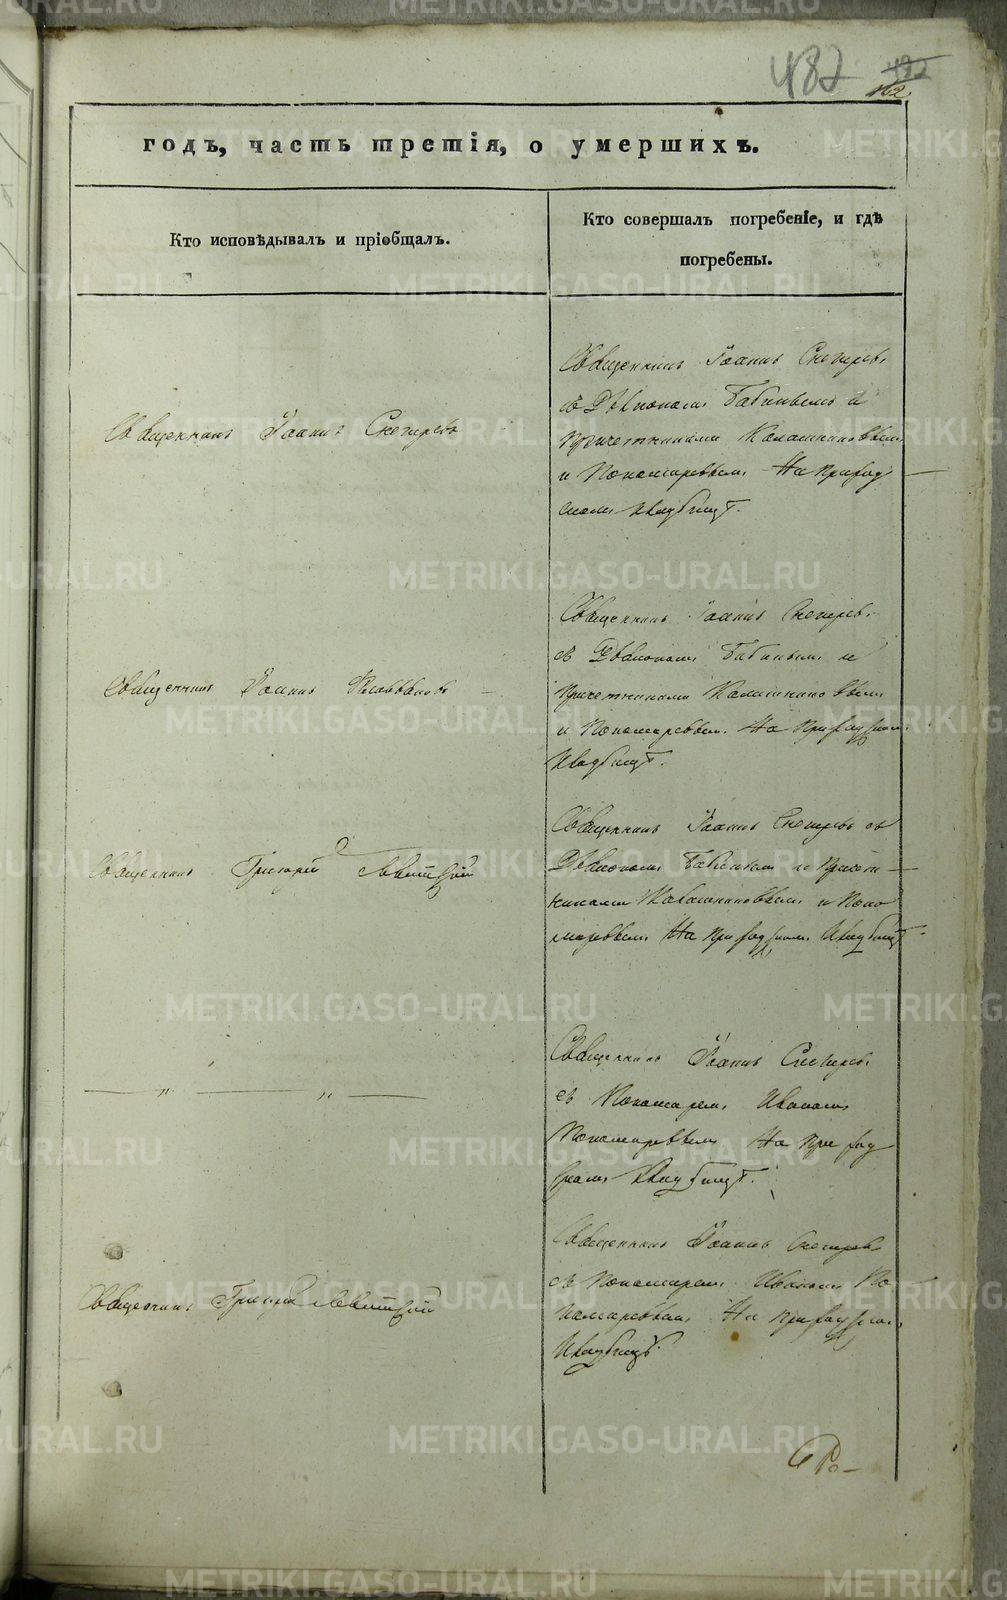 482
годъ, часть третія, о умершихъ.
Кто исповѣдывалъ и пріобщалъ.
Кто совершалъ погребеніе, и гдѣ
погребены.
Священникъ Іоаннъ Снегиревъ
Священникъ Іоаннъ Снегиревъ
съ Діакономъ Бабинымъ и
Причетниками Калашниковымъ
и Пономаревымъ На Приход
скомъ Кладбищѣ.
Священникъ Іоаннъ
Священникъ Іоаннъ Снегиревъ
съ Діакономъ Бабинымъ и
Причетниками Калашниковымъ
и Пономаревымъ На Приходскомъ
Кладбищѣ.
Священникъ Григорій Левитскій
Священникъ Іоаннъ Снегиревъ съ
Діакономъ Бабинымъ и Причет-
никами Калашниковымъ и Поно
маревымъ На Приходскомъ Кладбищѣ
— „ — „ —
Священникъ Іоаннъ Снегиревъ
съ Пономаремъ Иваномъ
Пономаревымъ На Приход
скомъ Кладбищѣ.
Священникъ Григорій Левитскій
Священникъ Іоаннъ Снегиревъ
съ Пономаремъ Иваномъ По
номаревымъ На Приходскомъ
Кладбищѣ.
METRIKI.GASO-URAL.RU